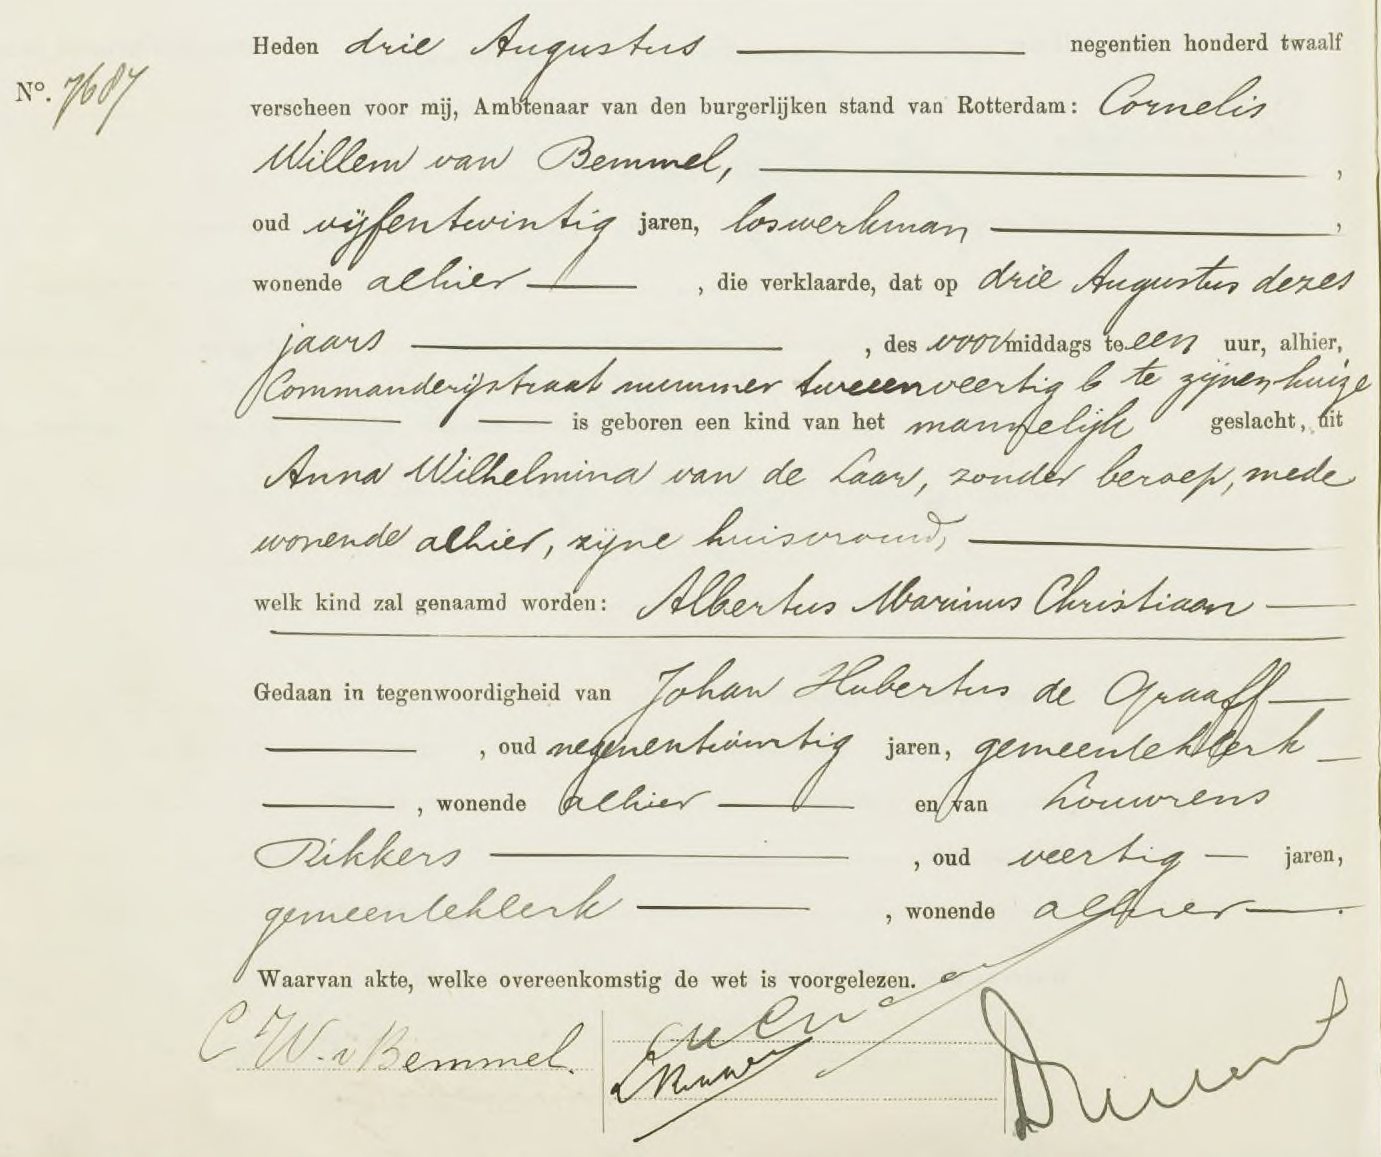 Heden drie Augustus negentien honderd twaalf
Nº. 7687
verscheen voor mij, Ambtenaar van den burgerlijken stand van Rotterdam: Cornelis
Willem van Bemmel, ,
oud vijfentwintig jaren, loswerkman ,
wonende alhier , die verklaarde, dat op drie Augustus dezes
jaars , des voormiddags te een uur, alhier,
Commanderijstraat nummer tweeenveertig b te zijnen huize
is geboren een kind van het mannelijk geslacht, uit
Anna Wilhelmina van de Laar, zonder beroep, mede
wonende alhier, zijne huisvrouw,
welk kind zal genaamd worden: Albertus Marinus Christiaan
Gedaan in tegenwoordigheid van Johan Hubertus de Graaff
, oud negenentwintig jaren, gemeenteklerk
, wonende alhier en van Louwrens
Rikkers , oud veertig jaren,
gemeenteklerk , wonende alhier .
Waarvan akte, welke overeenkomstig de wet is voorgelezen.
C W. v Bemmel.